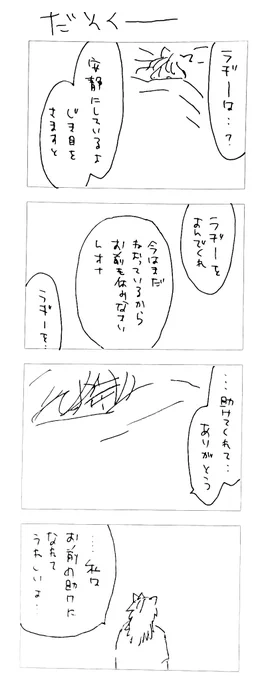 だそくー
ラギーは…?
安静にしているよ
じき目を
さますと
ラギーを
よんでくれ
今はまだ
ねむっているから
お前も休みなさい
レオナ
ラギーを…
…助けてくれて…
ありがとう
……私は
お前の助けに
なれて
うれしいよ…